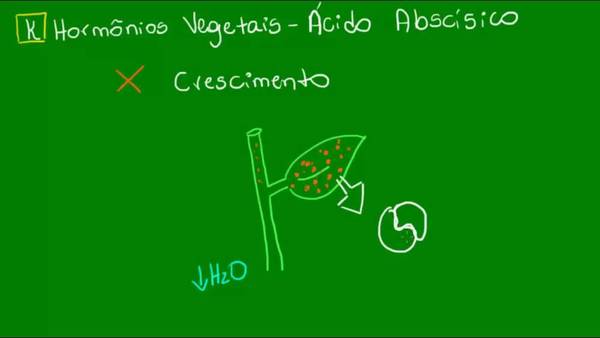 K Hormônios Vegetais - Ácido Abscísico
X Crescimento
↓H₂O